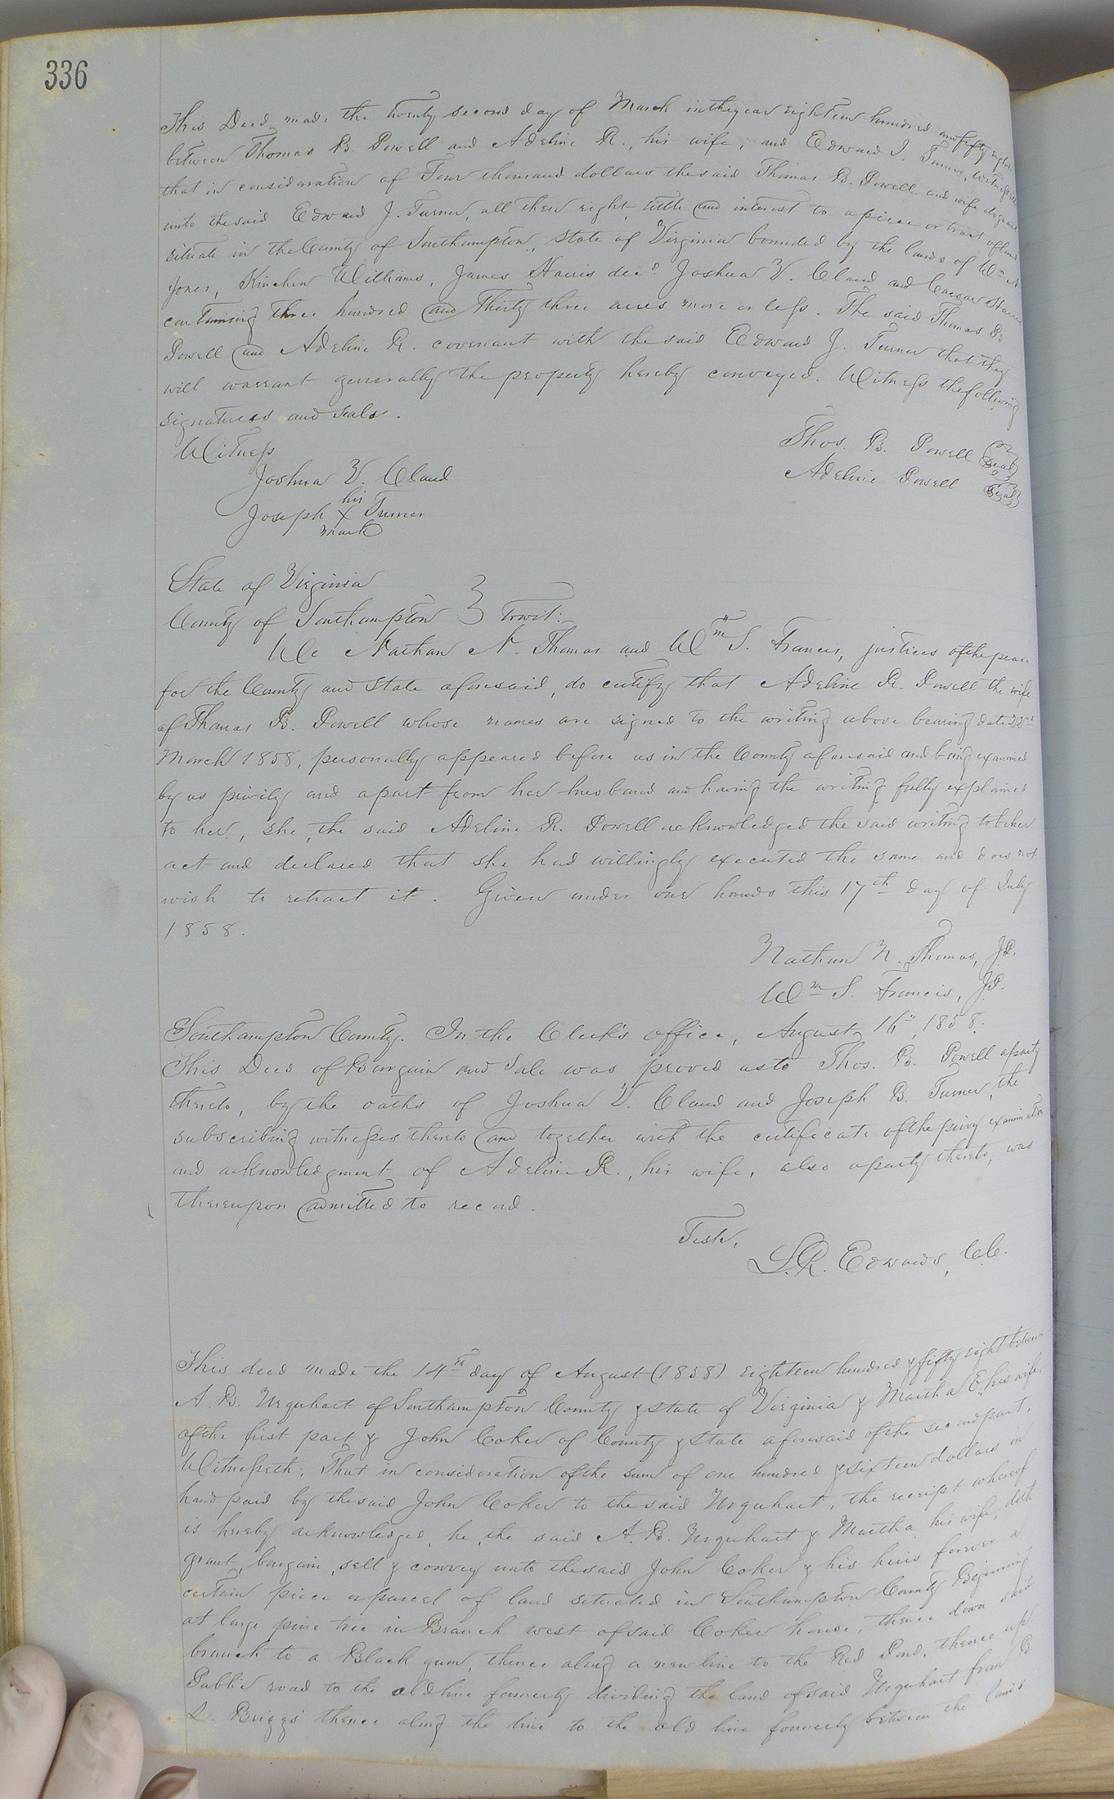 336
This Deed made the twenty second day of March in the year eighteen hundred and fifty eight
between Thomas B. Powell and Adeline R., his wife, and Edward J. Turner, Witnesseth
that in consideration of Four thousand dollars the said Thomas B. Powell and wife do grant
unto the said Edward J. Turner, all their right, title and interest to a piece or tract of land
situate in the County of Southampton, State of Virginia bounded by the lands of Wm N
Jones, Kinchen Williams, James Harris decd Joshua V. Claud and Caesar
containing three hundred and thirty three acres more or less. The said Thomas B.
Powell and Adeline R. covenant with the said Edward J. Turner that they
will warrant generally the property hereby conveyed. Witness the following
signatures and seals.
Witness
Thos. B. Powell Seal
Joshua V. Claud
Adeline Powell Seal
his
Joseph X Turner
mark
State of Virginia
County of Southampton } towit:
We Nathan N. Thomas and Wm S. Francis, justices of the peace
for the County and State aforesaid, do certify that Adeline R. Powell the wife
of Thomas B. Powell whose names are signed to the writing above bearing date 22nd
March 1858, personally appeared before us in the County aforesaid and being examined
by us privily and apart from her husband and having the writing fully explained
to her, she, the said Adeline R. Powell acknowledged the said writing to be her
act and declared that she had willingly executed the same and does not
wish to retract it. Given under our hands this 17th day of July
1858.
Nathan N. Thomas, J.P.
Wm S. Francis, J.P.
Southampton County. In the Clerk's office, August 16th 1858.
This Deed of Bargain and Sale was proved as to Thos. B. Powell a party
thereto, by the oaths of Joshua V. Claud and Joseph B. Turner, the
subscribing witnesses thereto and together with the certificate of the privy examination
and acknowledgment of Adeline R., his wife, also a party thereto, was
thereupon admitted to record.
Teste,
L. R. Edwards, C.C.
This deed made the 14th day of August (1858) eighteen hundred & fifty eight between
A. B. Urquhart of Southampton County & State of Virginia & Martha E. his wife,
of the first part & John Coker of County & State aforesaid of the second part,
Witnesseth, That in consideration of the sum of one hundred & sixteen dollars in
hand paid by the said John Coker to the said Urquhart, the receipt whereof
is hereby acknowledged, he, the said A. B. Urquhart & Martha his wife, doth
grant, bargain, sell & convey unto the said John Coker & his heirs forever a
certain piece or parcel of land situated in Southampton County Beginning
at large pine tree in Branch west of said Coker house, thence down said
branch to a Black gum, thence along a new line to the Red Pond, thence up
Public road to the old line formerly dividing the land of said Urquhart from B
L. Briggs' thence along the line to the old line formerly between the lands